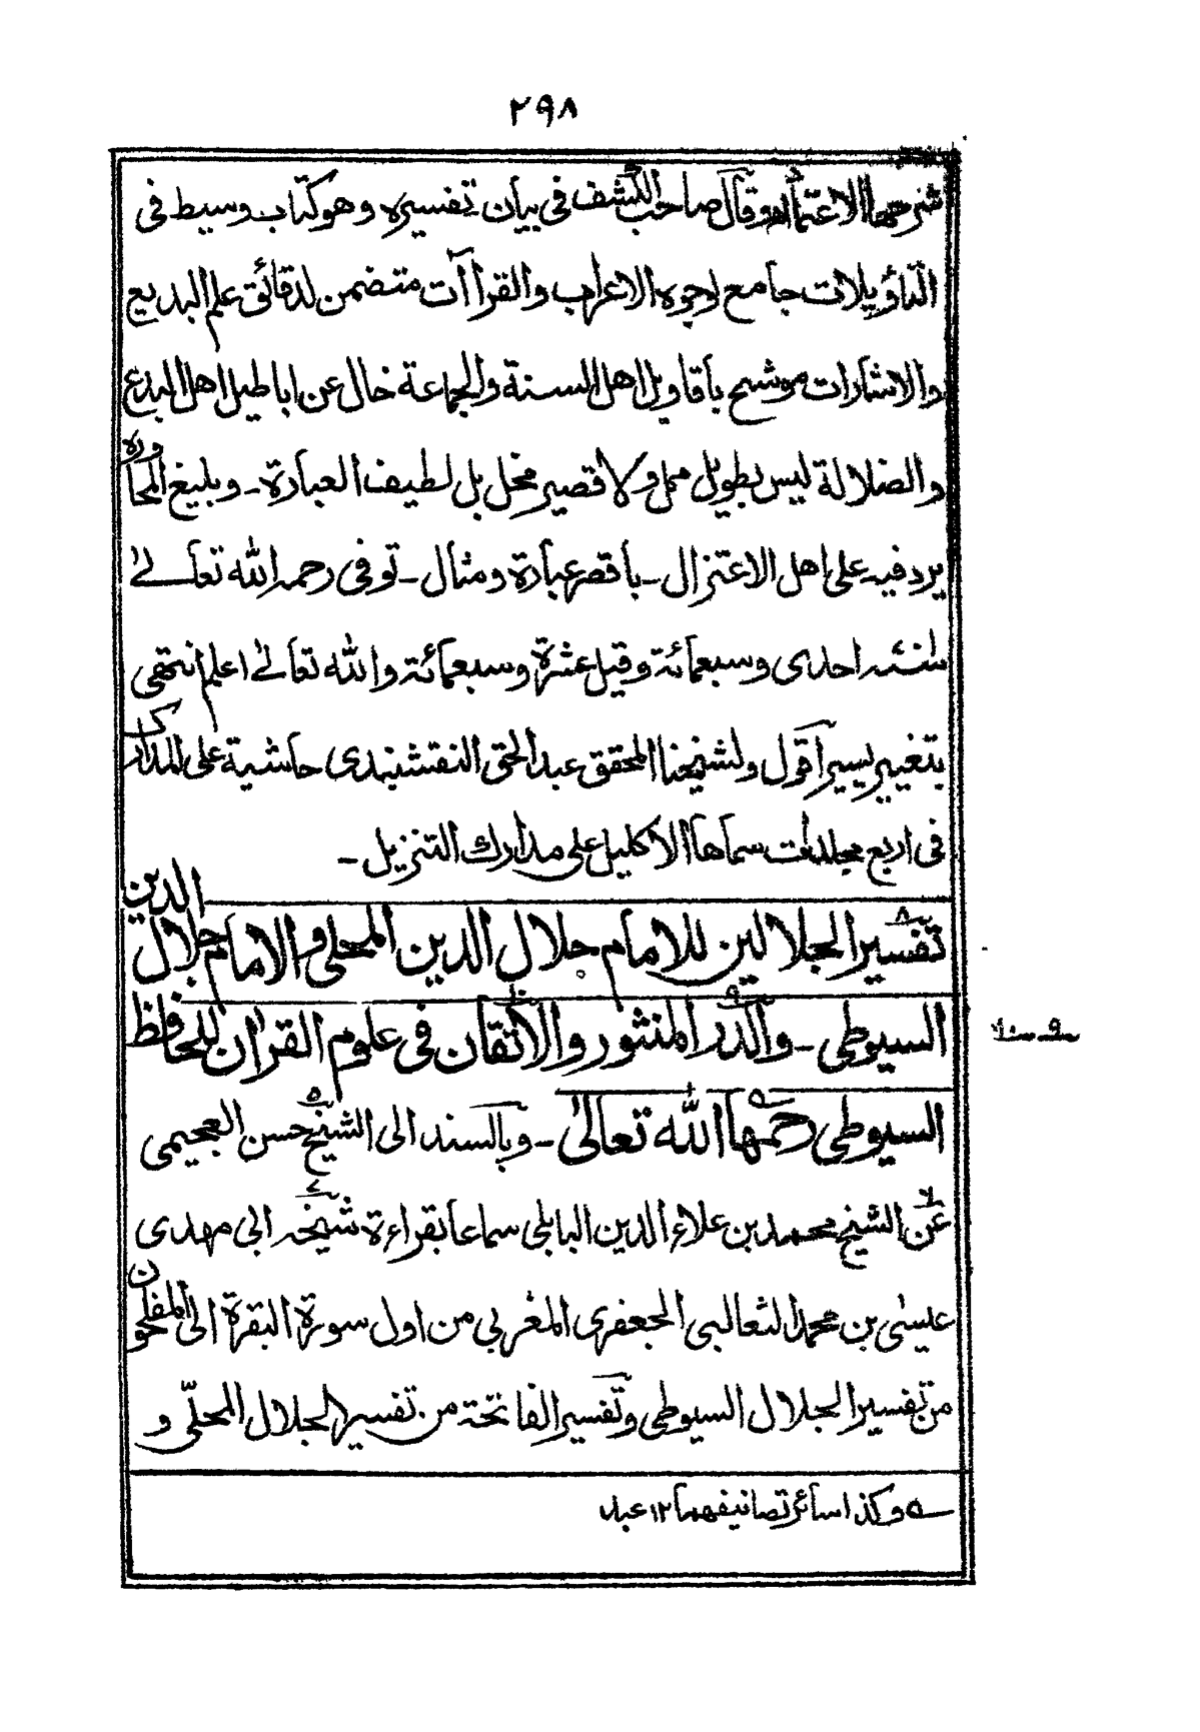 ٢٩٨
شرحها الاعتماد وقال صاحب الكشف فى بيان تفسيره وهو كتاب وسيط فى
التأويلات جامع لوجوه الاعراب والقراآت متضمن لدقائق علم البديع
والاشارات موشح باقاويل اهل السنة والجماعة خال عن اباطيل اهل البدع
والضلالة ليس بطويل ممل ولا قصير مخل بل لطيف العبارة ـ وبليغ المحاورة
يرد فيه على اهل الاعتزال ـ باقصر عبارة ومثال ـ توفى رحمه الله تعالىٰ
سنه احدى وسبعمائة وقيل عشرة وسبعمائة والله تعالىٰ اعلم انتهى
بتغيير يسير اقول ولشيخنا المحقق عبد الحق النقشبندى حاشية على المدارك
فى اربع مجلدات سماها الاكليل على مدارك التنزيل ـ
تفسير الجلالين للامام جلال الدين المحلى والامام جلال الدين
السيوطى ـ والدر المنثور والاتقان فى علوم القرآن للحافظ
السيوطى رحمهما الله تعالىٰ ـ وبالسند الى الشيخ حسن العجيمى
عن الشيخ محمد بن علاء الدين البابلى سماعا بقراءة شيخه ابى مهدى
عيسىٰ بن محمد الثعالبى الجعفرى المغربى من اول سورة البقرة الى المفلحون
من تفسير الجلال السيوطى وتفسير الفاتحة من تفسير الجلال المحلّى و
٥ وكذا سائر تصانيفهما ١٢ عبد